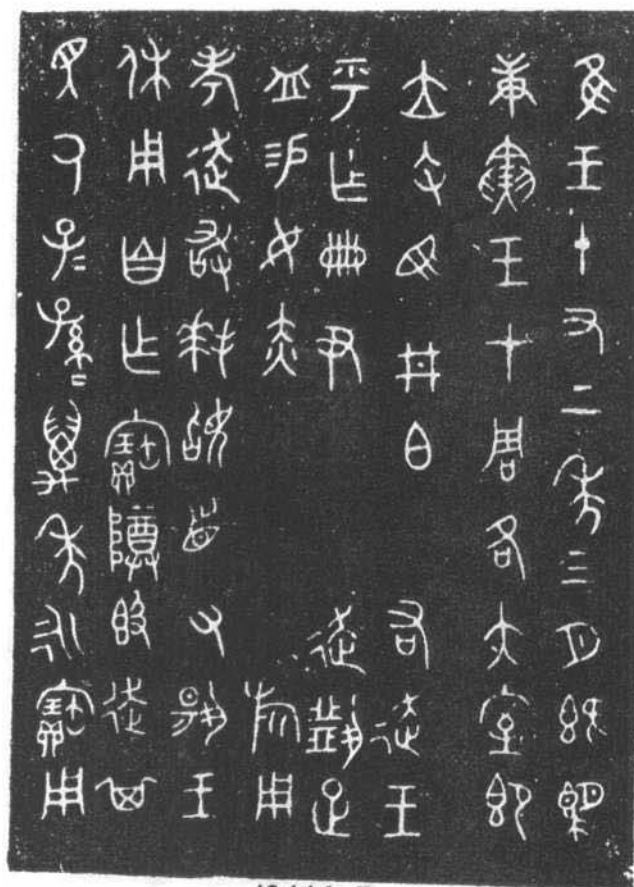 隹王十又二年三月既望
庚寅王才周各大室即
立司馬井白右走王
乎乍冊尹走疋
易女赤旂用
事走敢拜首對揚王
休用自乍寶尊𣪘走其
眔厥子=孫=萬年永寶用